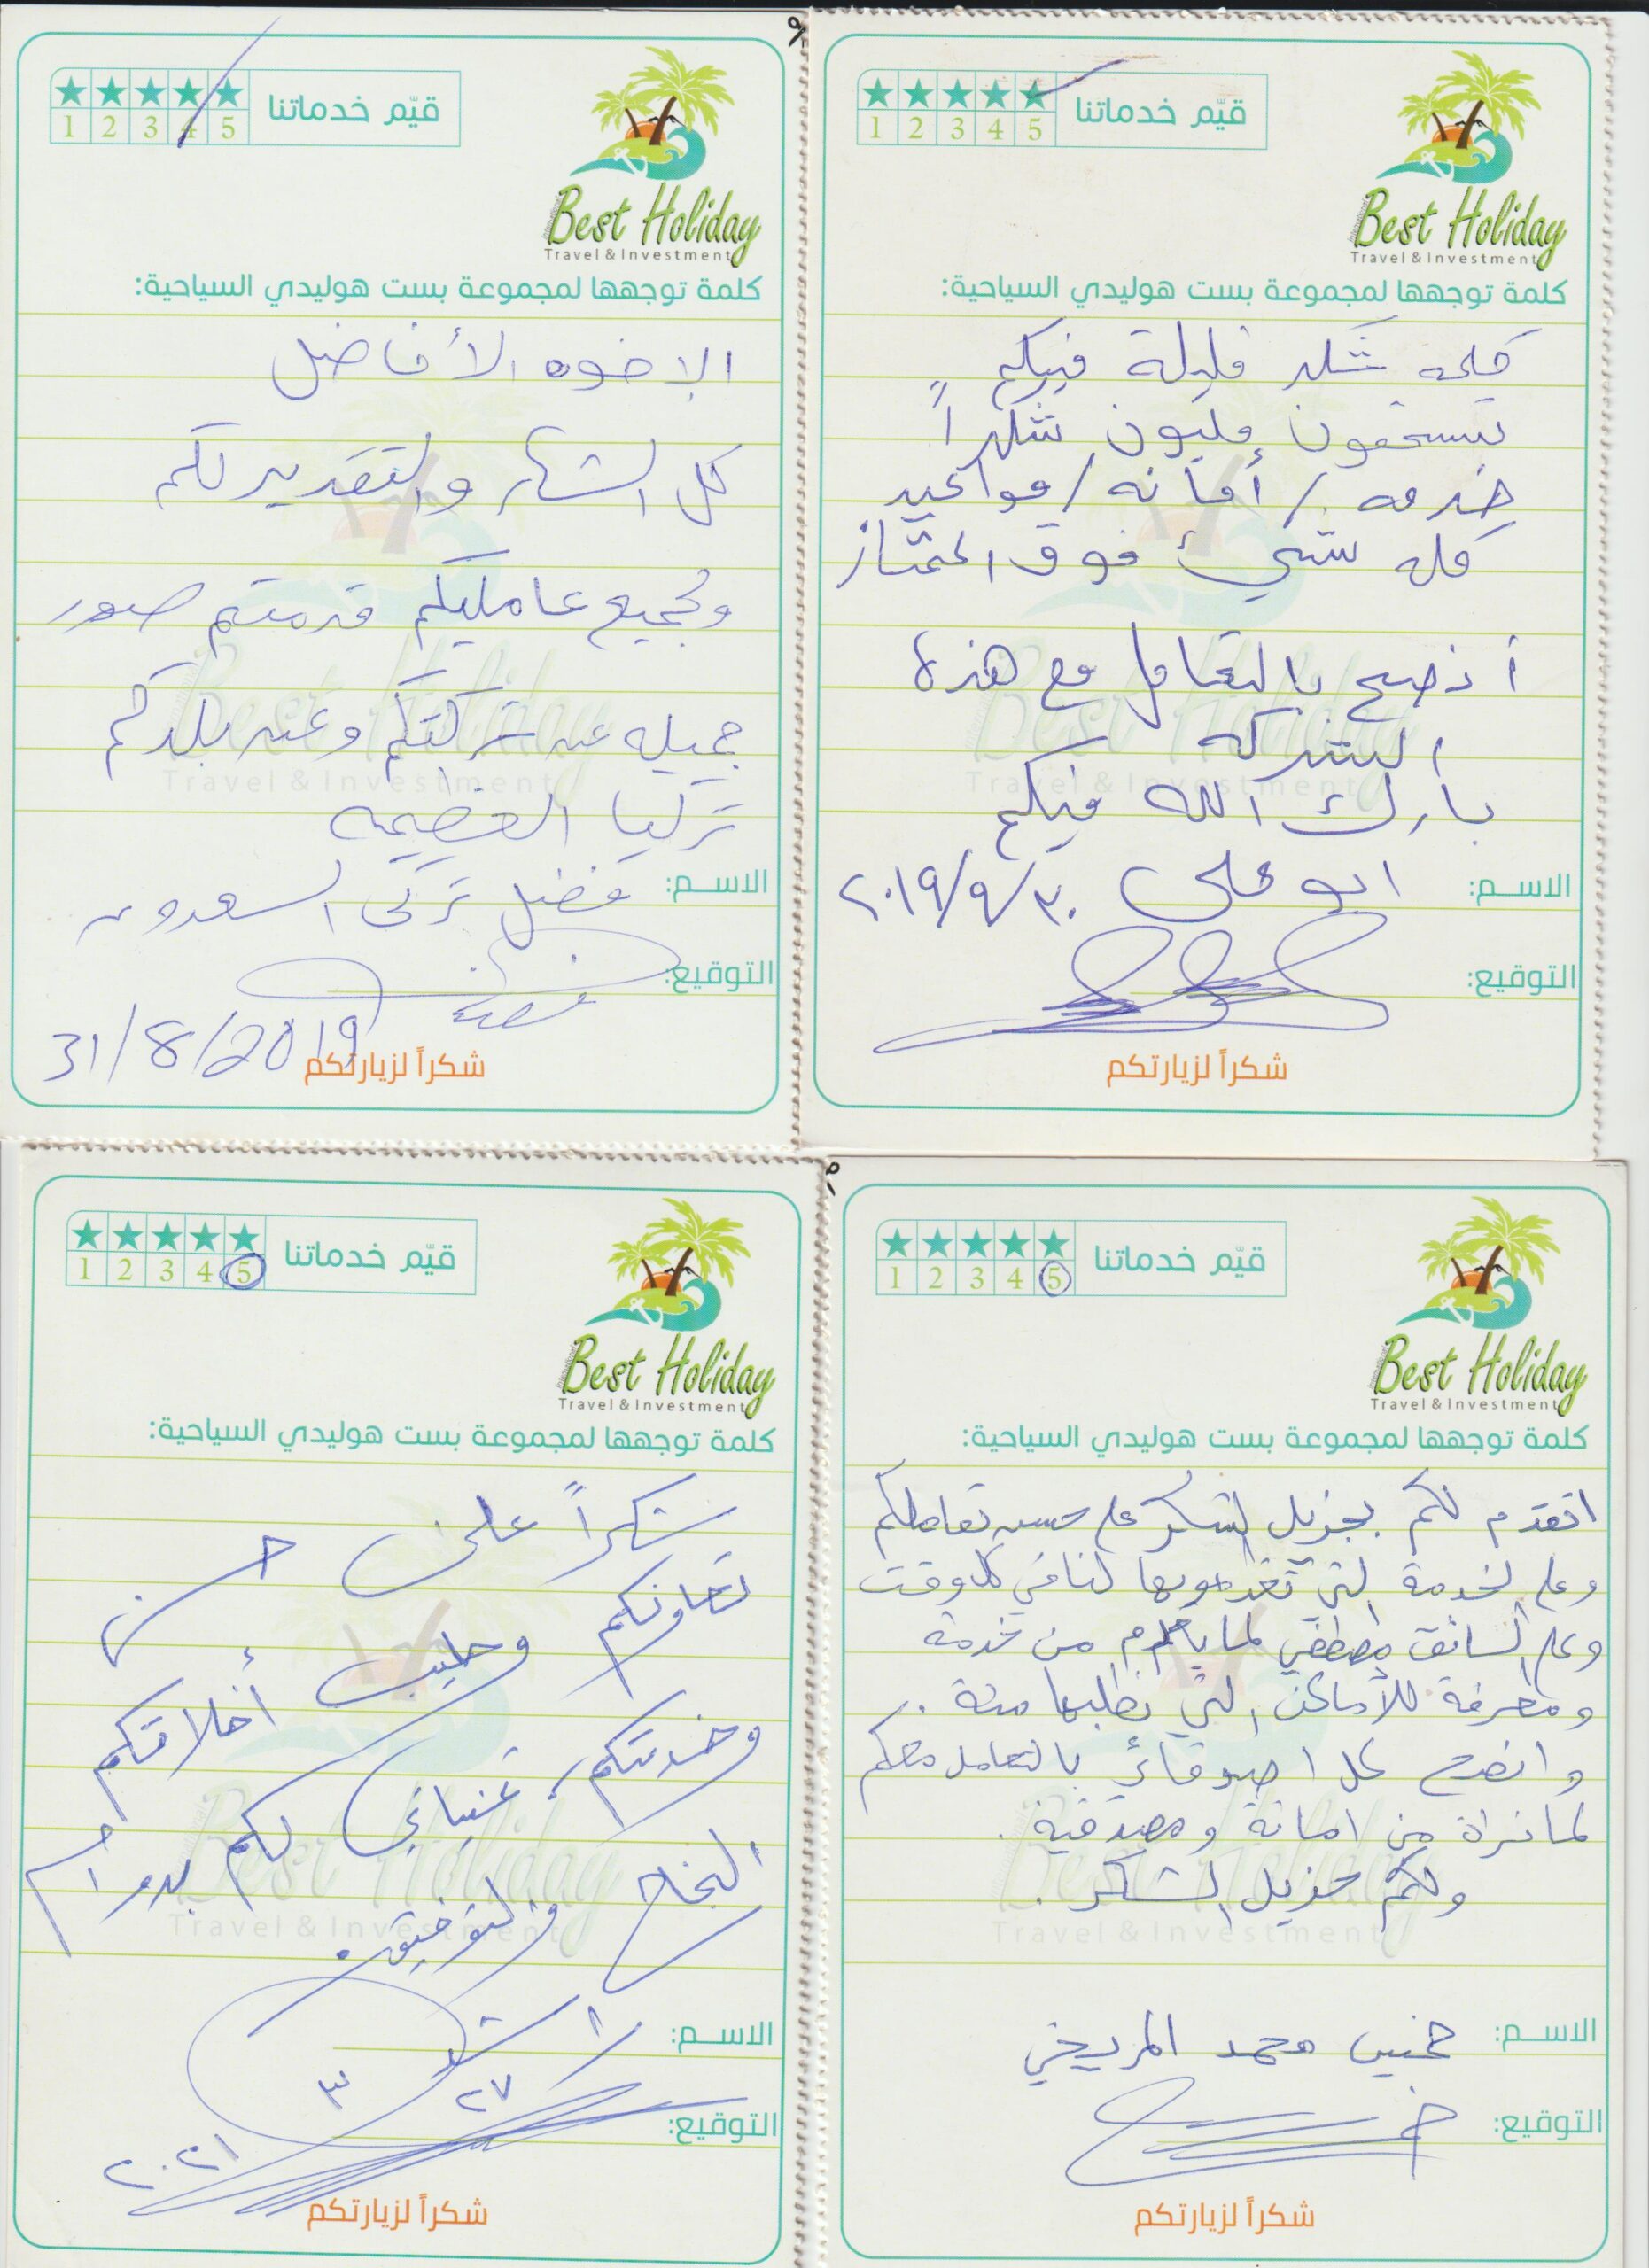 قيّم خدماتنا
1 2 3 4 5
Best Holiday
Travel & Investment
كلمة توجهها لمجموعة بست هوليدي السياحية:
كلمه شكر قليلة فيكم
تستحقون مليون شكراً
خدمه / أمانه / مواعيد
كله شيء فوق الممتاز
أنصح بالتعامل مع هذه
الشركه
بارك الله فيكم
الاسم: ابو علي ٢٠١٩/٩/٣٠
التوقيع:
شكراً لزيارتكم
قيّم خدماتنا
1 2 3 4 5
Best Holiday
Travel & Investment
كلمة توجهها لمجموعة بست هوليدي السياحية:
الإخوه الأفاضل
كل الشكر والتقدير لكم
ولجميع عامليكم قدمتم صور
جميله عن شركتكم وعن بلدكم
تركيا العظيمه
الاسم: فضل تركي السعدون
التوقيع:
31/8/2019
شكراً لزيارتكم
قيّم خدماتنا
1 2 3 4 5
Best Holiday
Travel & Investment
كلمة توجهها لمجموعة بست هوليدي السياحية:
اتقدم لكم بجزيل الشكر على حسن تعاملكم
وعلى الخدمة التي تقدمونها لنا في كل وقت
وعلى السائق مصطفي لما من خدمة
ومعرفة للأماكن التي نطلبها منة .
وانصح كل اصدقائي بالتعامل معكم
لما نراة من امانة ومصدقية .
ولكم جزيل الشكر .
الاسم: خميس محمد المريخي
التوقيع:
شكراً لزيارتكم
قيّم خدماتنا
1 2 3 4 5
Best Holiday
Travel & Investment
كلمة توجهها لمجموعة بست هوليدي السياحية:
شكراً على حسن
تعاونكم وطيب أخلاقكم
وخدمتكم، تمنياتي لكم بدوام
النجاح والتوفيق.
الاسم: راشد
٢٧ ٣
التوقيع:
٢٠٢١
شكراً لزيارتكم